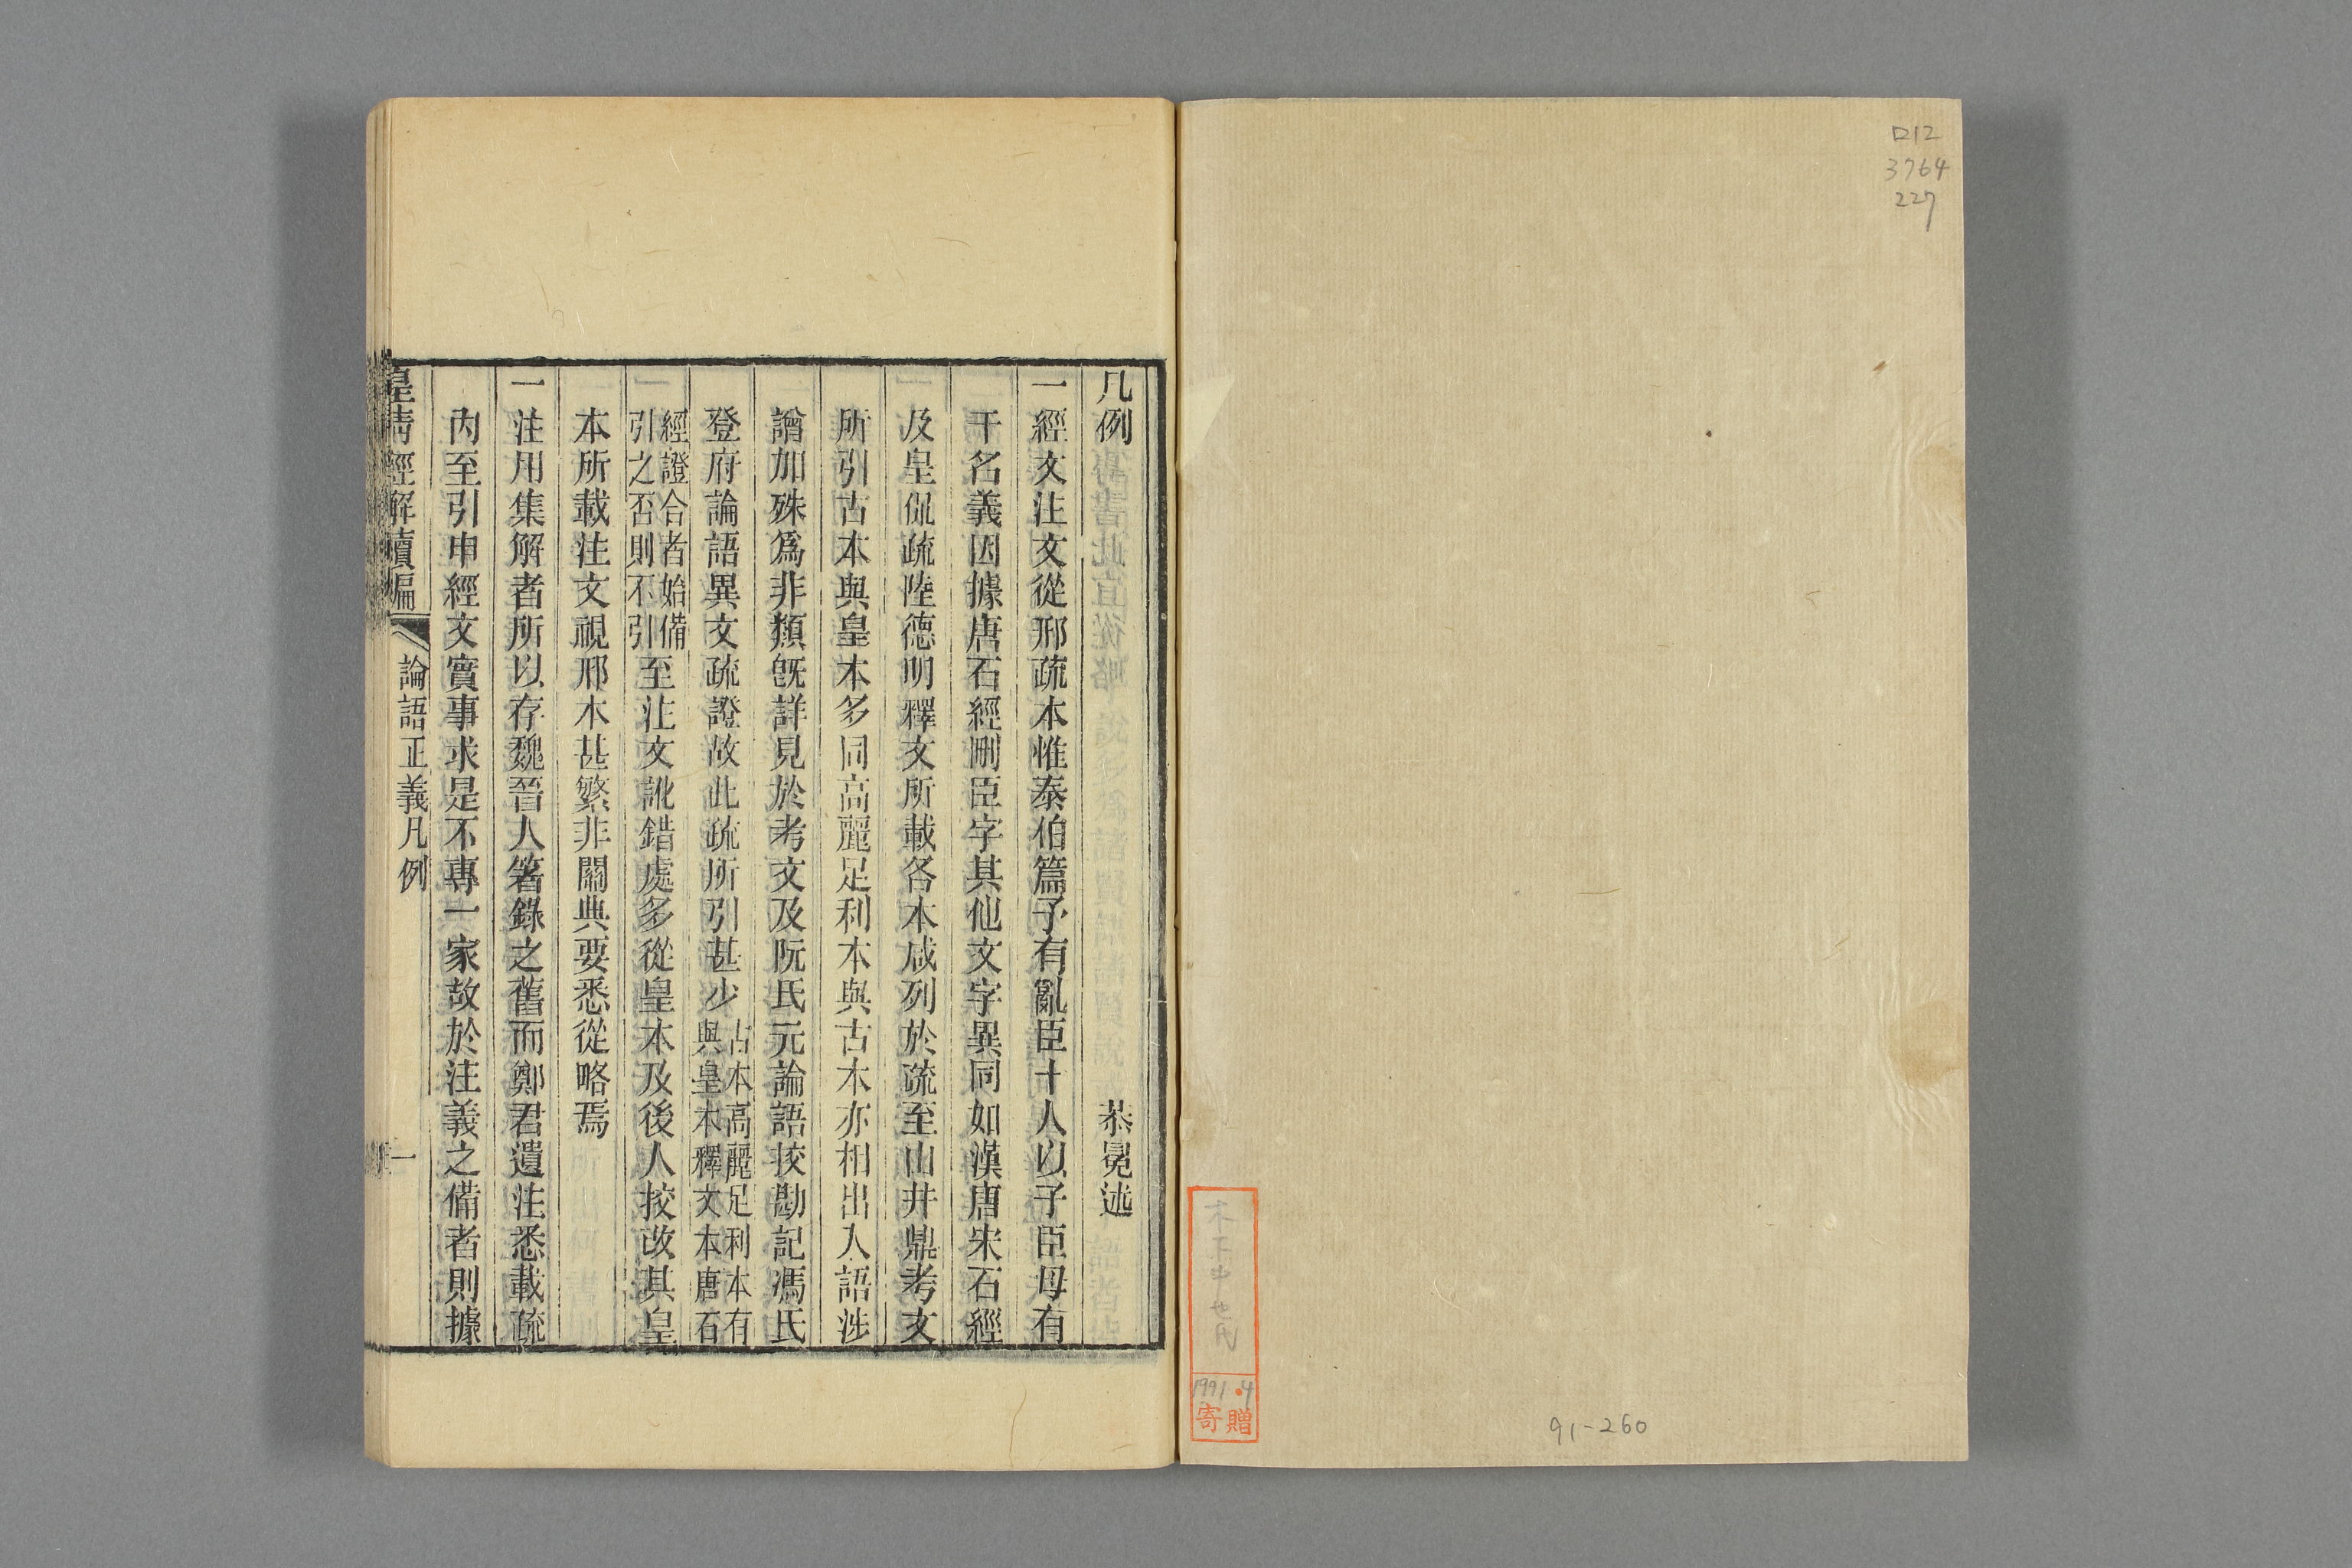 口12
3764
227
1991.4
寄贈
91-260
凡例 恭冕述
一經文注文從邢疏本惟泰伯篇予有亂臣十人以子臣母有
干名義因據唐石經刪臣字其他文字異同如漢唐宋石經
及皇侃疏陸德明釋文所載各本咸列於疏至山井鼎考文
所引古本與皇本多同高麗足利本與古本亦相出入語涉
譌加殊爲非類旣詳見於考文及阮氏元論語挍勘記馮氏
登府論語異文疏證故此疏所引甚少古本高麗足利本有與皇本釋文本唐石
經證合者始備引之否則不引至注文訛錯處多從皇本及後人挍改其皇
本所載注文視邢本甚繁非關典要悉從略焉
一注用集解者所以存魏晉人箸錄之舊而鄭君遺注悉載疏
內至引申經文實事求是不專一家故於注義之備者則據
皇清經解續編 論語正義凡例 一